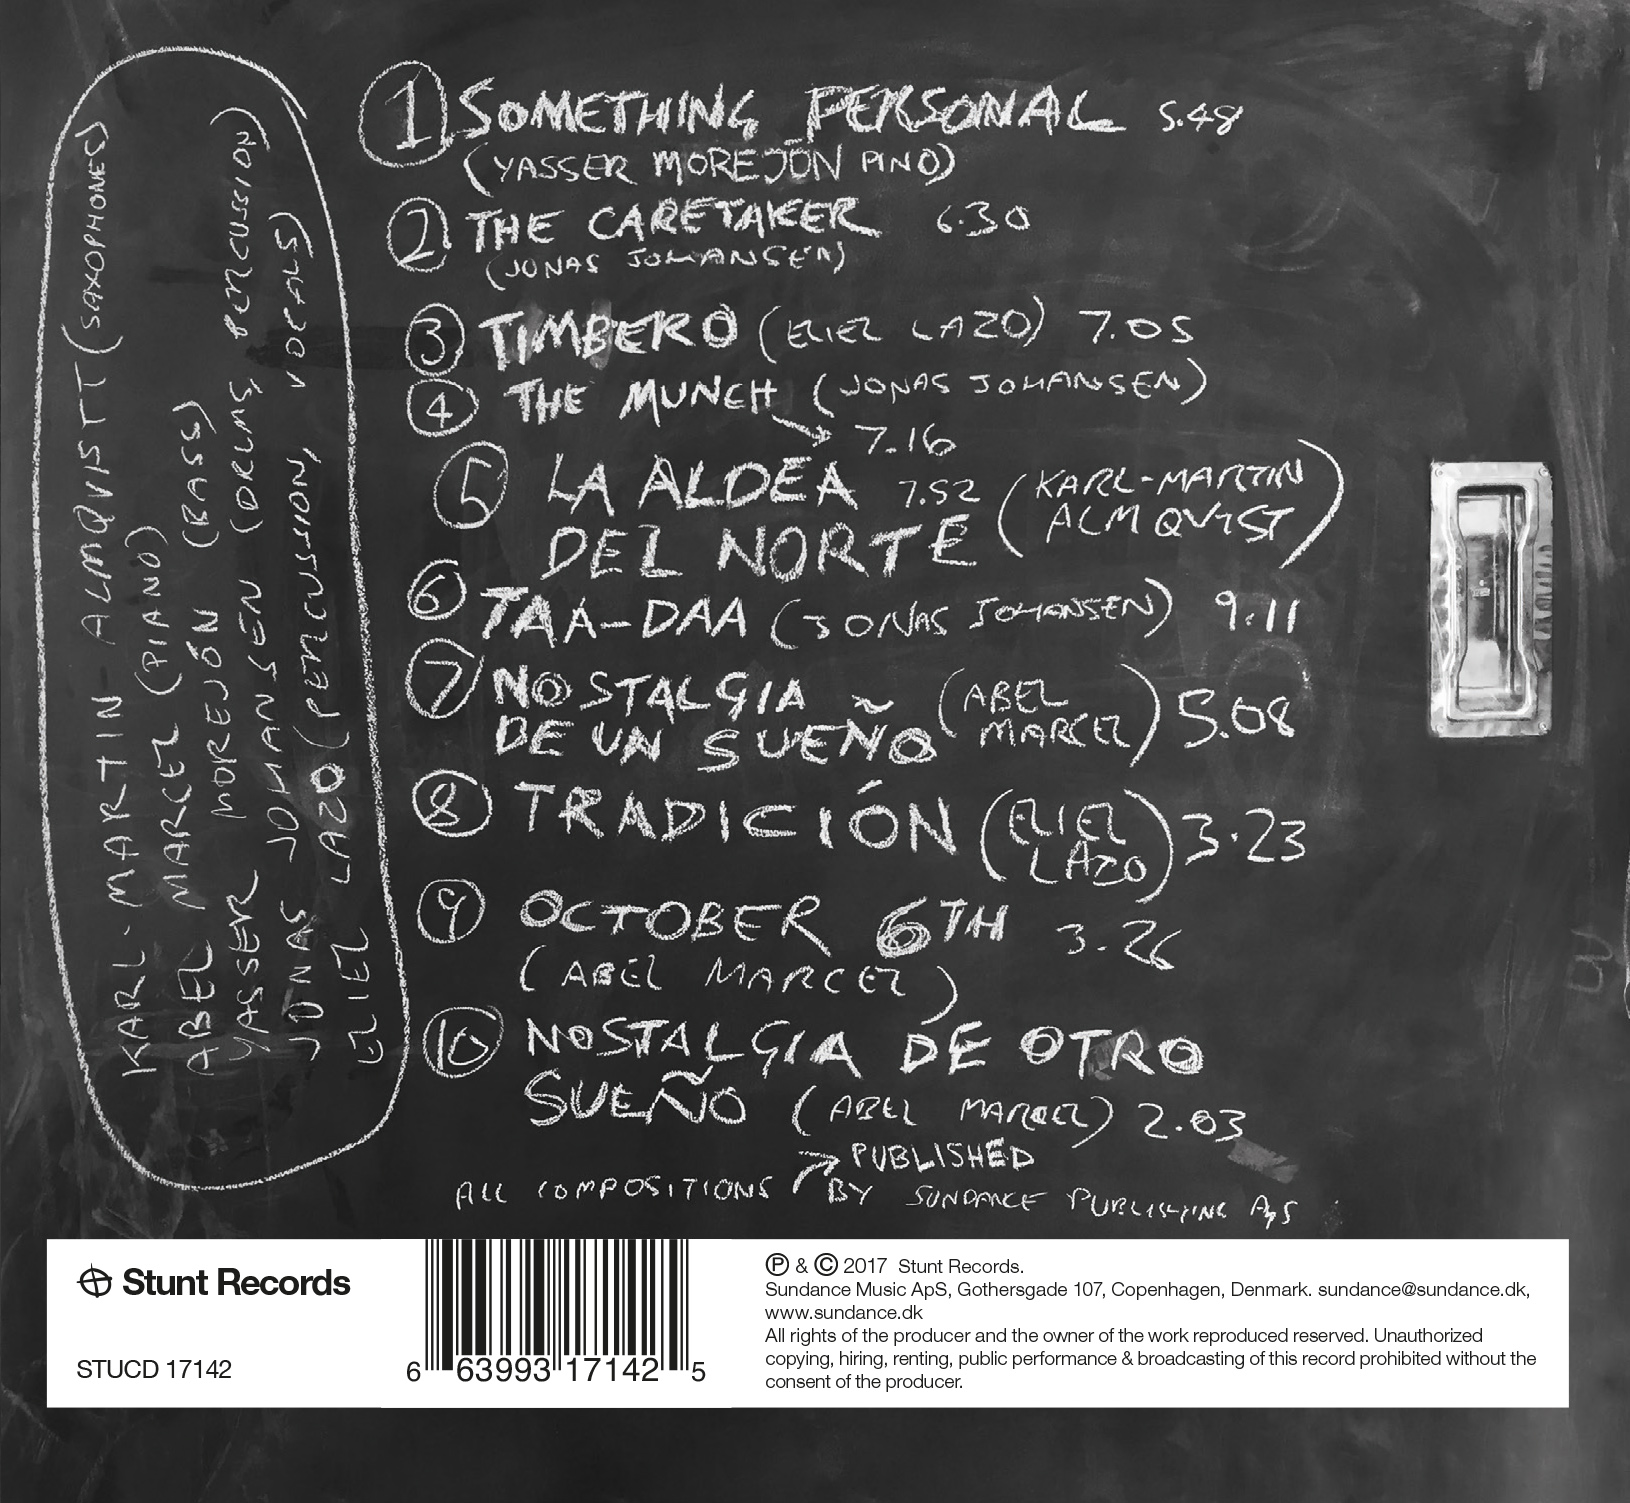 KARL-MARTIN ALMQVIST (SAXOPHONES)
ABEL MARCEL (PIANO)
YASSER MOREJÓN (BASS)
JONAS JOHANSEN (DRUMS, PERCUSSION)
ELIEL LAZO (PERCUSSION, VOCALS)
1 SOMETHING PERSONAL 5.48
(YASSER MOREJÓN PINO)
2 THE CARETAKER 6.30
(JONAS JOHANSEN)
3 TIMBERO (ELIEL LAZO) 7.05
4 THE MUNCH (JONAS JOHANSEN)
7.16
5 LA ALDEA 7.52 (KARL-MARTIN
DEL NORTE ALMQVIST)
6 TAA-DAA (JONAS JOHANSEN) 9.11
7 NOSTALGIA (ABEL
DE UN SUEÑO MARCEL) 5.08
8 TRADICIÓN (ELIEL
LAZO) 3.23
9 OCTOBER 6TH 3.26
(ABEL MARCEL)
10 NOSTALGIA DE OTRO
SUEÑO (ABEL MARCEL) 2.03
ALL COMPOSITIONS PUBLISHED
BY SUNDANCE PUBLISHING APS
Stunt Records
STUCD 17142
6 63993 17142 5
℗ & © 2017 Stunt Records.
Sundance Music ApS, Gothersgade 107, Copenhagen, Denmark. sundance@sundance.dk,
www.sundance.dk
All rights of the producer and the owner of the work reproduced reserved. Unauthorized
copying, hiring, renting, public performance & broadcasting of this record prohibited without the
consent of the producer.